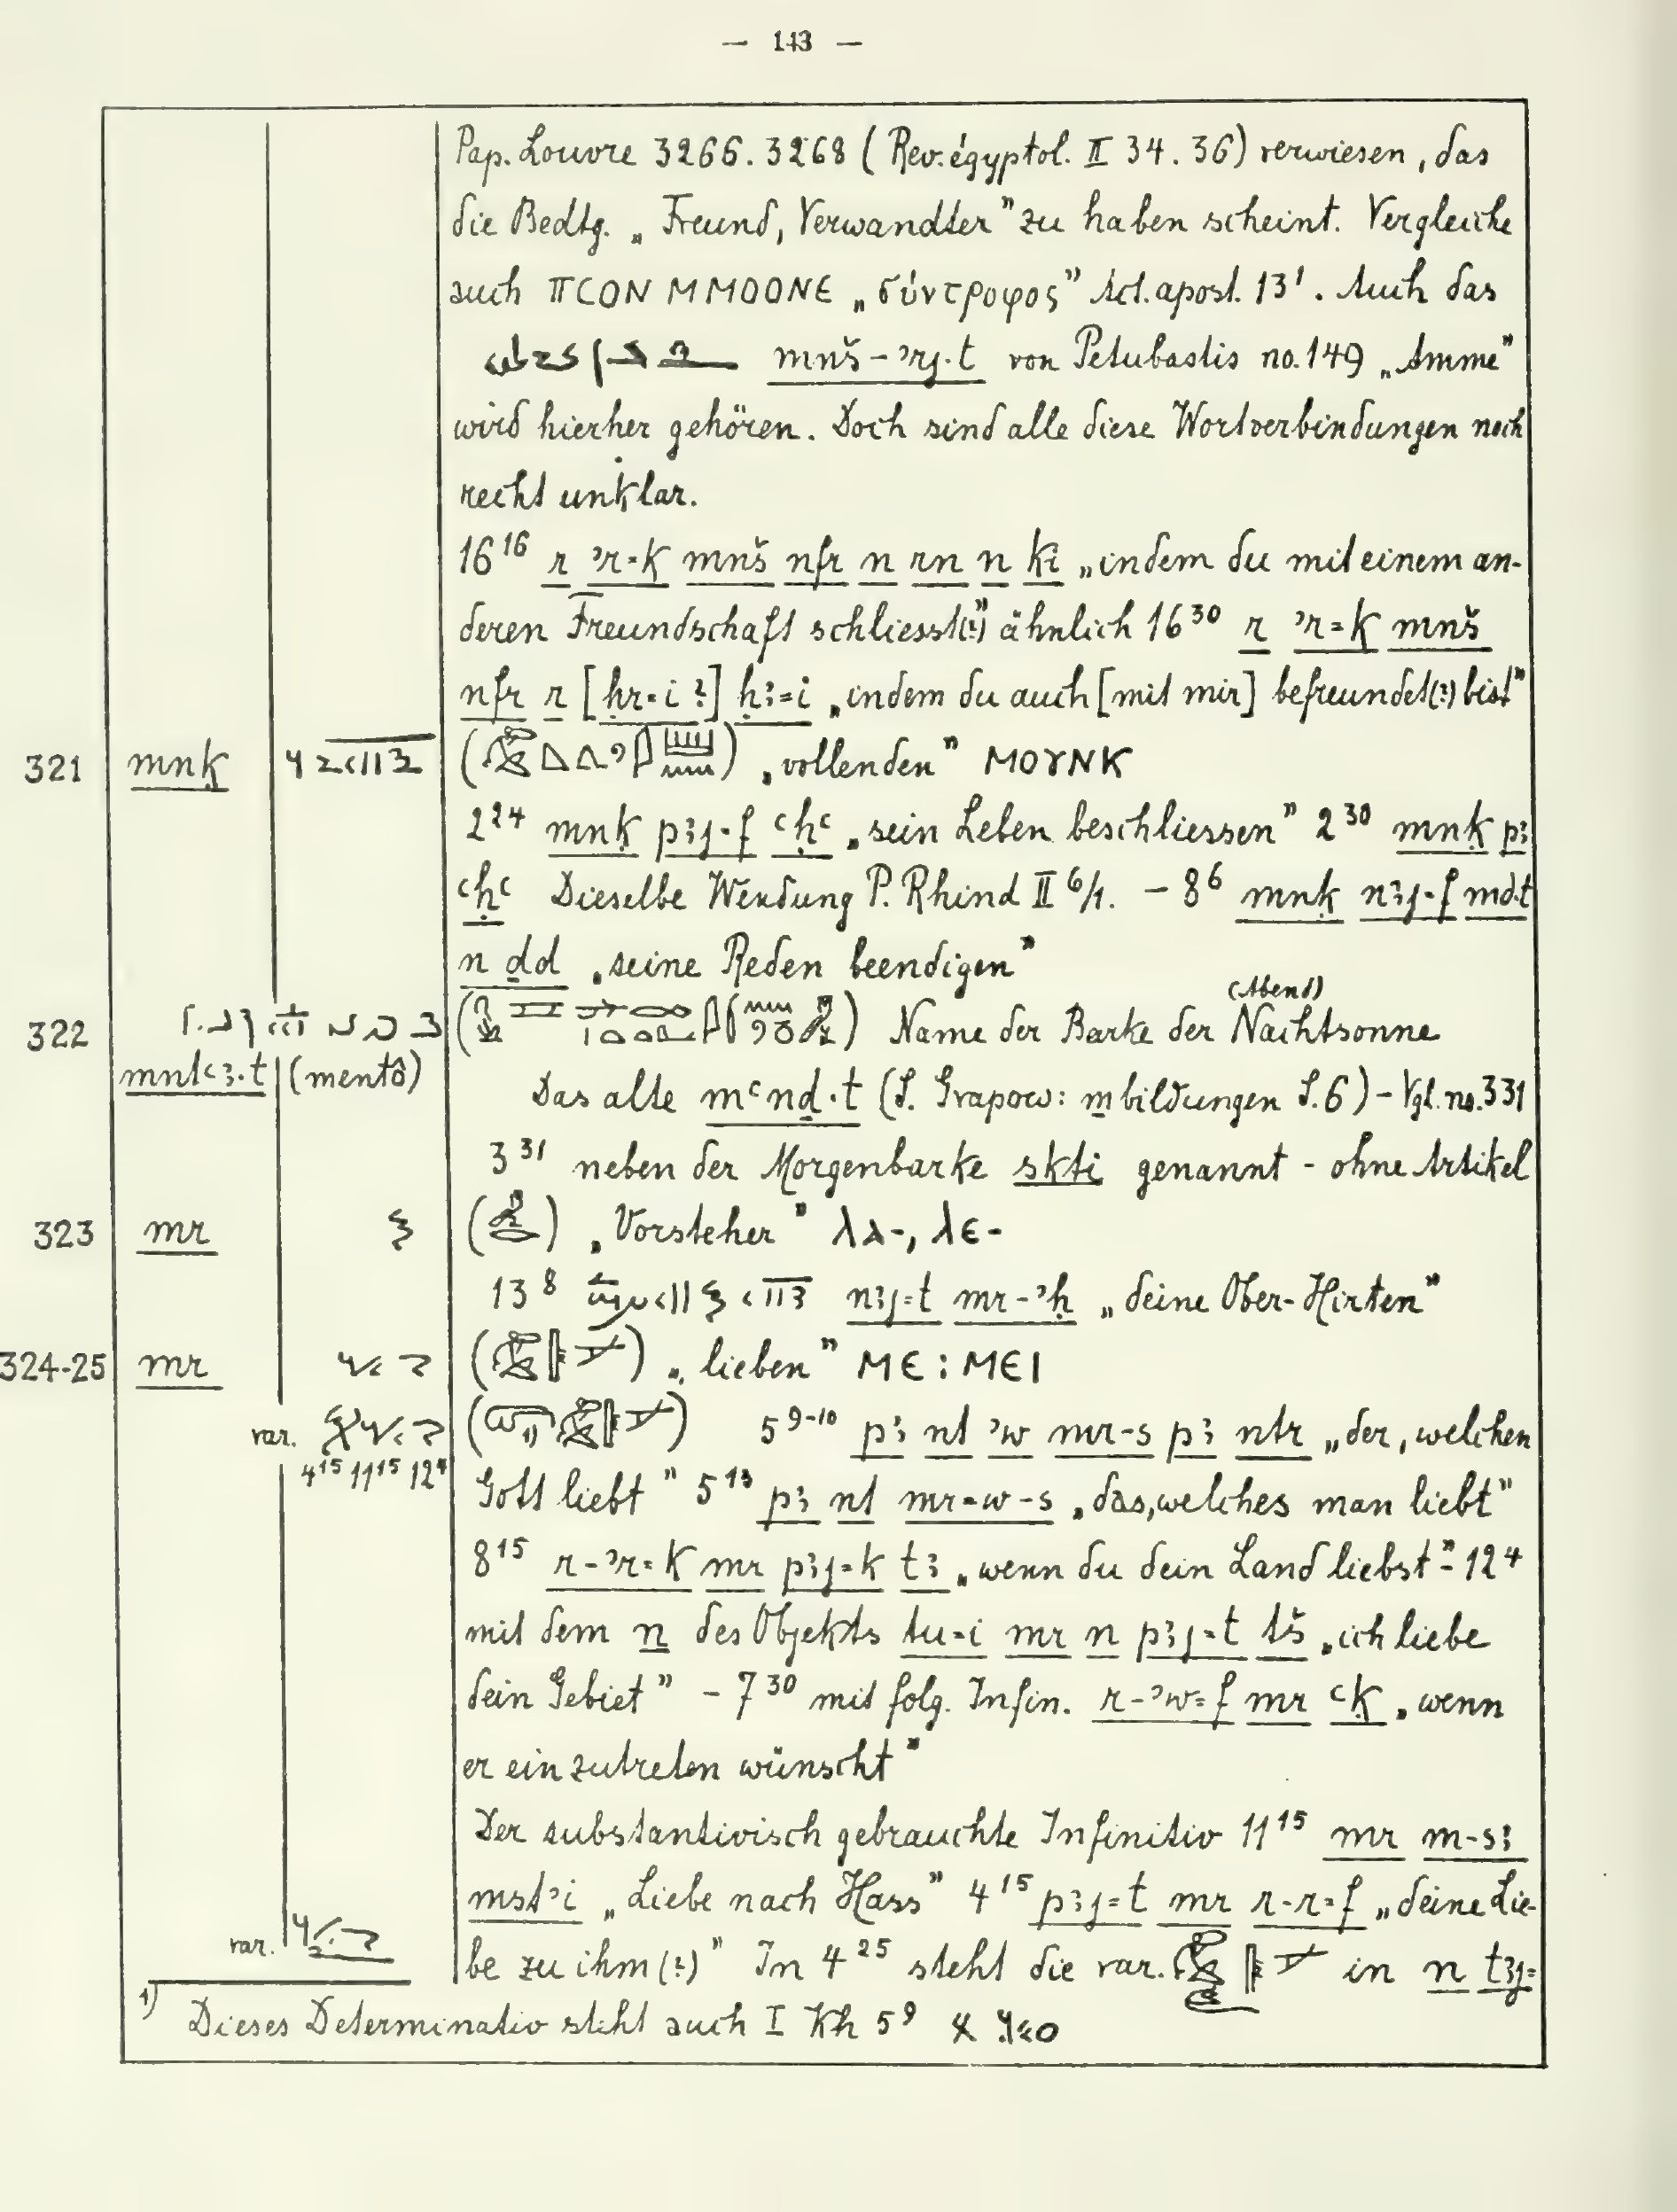 — 143 —
Pap. Louvre 3266. 3268 (Rev. égyptol. II 34. 36) verwiesen, das
die Bedtg. „Freund, Verwandter" zu haben scheint. Vergleiche
auch ⲠⲤⲞⲚ ⲘⲘⲞⲞⲚⲈ „σύντροφος" Act. apost. 13¹. Auch das
mnš-ꜣrj.t von Petubastis no. 149 „Amme"
wird hierher gehören. Doch sind alle diese Wortverbindungen noch
recht unklar.
16¹⁶ r ꜣr=k mnš nfr n rn n ki „indem du mit einem an-
deren Freundschaft schliesst(?)" ähnlich 16³⁰ r ꜣr=k mnš
nfr r [ḥr=i ?] ḥꜣ=i „indem du auch [mit mir] befreundet(?) bist"
321 mnḳ ( ) „vollenden" ⲘⲞⲨⲚⲔ
2²⁴ mnḳ pꜣj-f ꜥḥꜥ „sein Leben beschliessen" 2³⁰ mnḳ pꜣ
ꜥḥꜥ Dieselbe Wendung P. Rhind II 6/1. – 8⁶ mnḳ nꜣj-f md.t
n ḏd „seine Reden beendigen"
(Abend)
322 ( ) Name der Barke der Nachtsonne
mntꜥꜣ.t (mentô)
Das alte mꜥnḏ.t (S. Grapow: m bildungen S. 6) – Vgl. no. 331
3³¹ neben der Morgenbarke skti genannt - ohne Artikel
323 mr ( ) „Vorsteher" ⲗⲁ-, ⲗⲉ-
13⁸ nꜣj=t mr-ꜣḥ „deine Ober-Hirten"
324-25 mr ( ) „lieben" ⲘⲈ : ⲘⲈⲒ
var. ( ¹⁾ ) 5⁹⁻¹⁰ pꜣ nt ꜣw mr-s pꜣ ntr „der, welchen
4¹⁵ 11¹⁵ 12⁴
Gott liebt" 5¹³ pꜣ nt mr=w-s „das, welches man liebt"
8¹⁵ r-ꜣr=k mr pꜣj=k tꜣ „wenn du dein Land liebst" - 12⁴
mit dem n des Objekts tu=i mr n pꜣj=t tš „ich liebe
dein Gebiet" – 7³⁰ mit folg. Infin. r-ꜣw=f mr ꜥḳ „wenn
er einzutreten wünscht"
Der substantivisch gebrauchte Infinitiv 11¹⁵ mr m-sꜣ
mstꜣi „Liebe nach Hass" 4¹⁵ pꜣj=t mr r-r=f „deine Lie-
var. be zu ihm (?)" In 4²⁵ steht die var. in n tꜣj=
¹⁾ Dieses Determinativ steht auch I Kh 5⁹